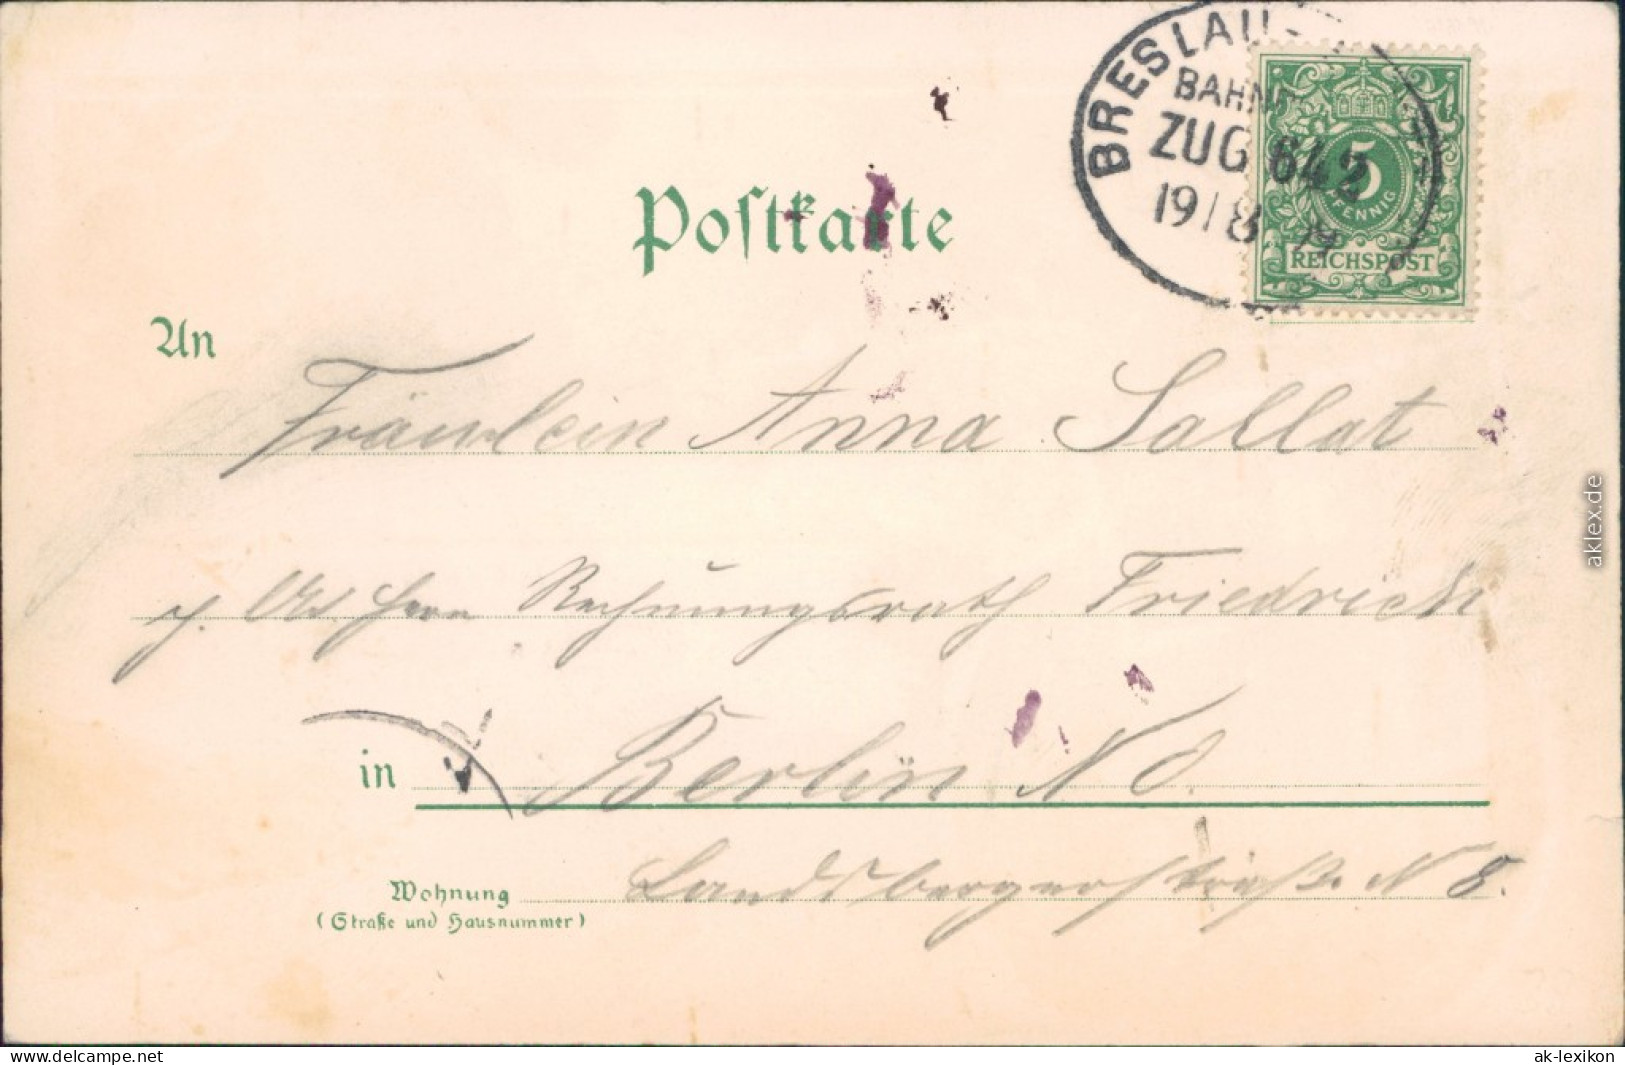 BRESLAU
BAHN
ZUG 642
19/8
5
PFENNIG
REICHSPOST
Postkarte
An
Fräulein Anna Sallat
Herrn Rechnungsrath Friedrich
in Berlin N O.
Wohnung Landsbergerstraße N 8.
(Straße und Hausnummer)
aklex.de
www.delcampe.net
ak-lexikon